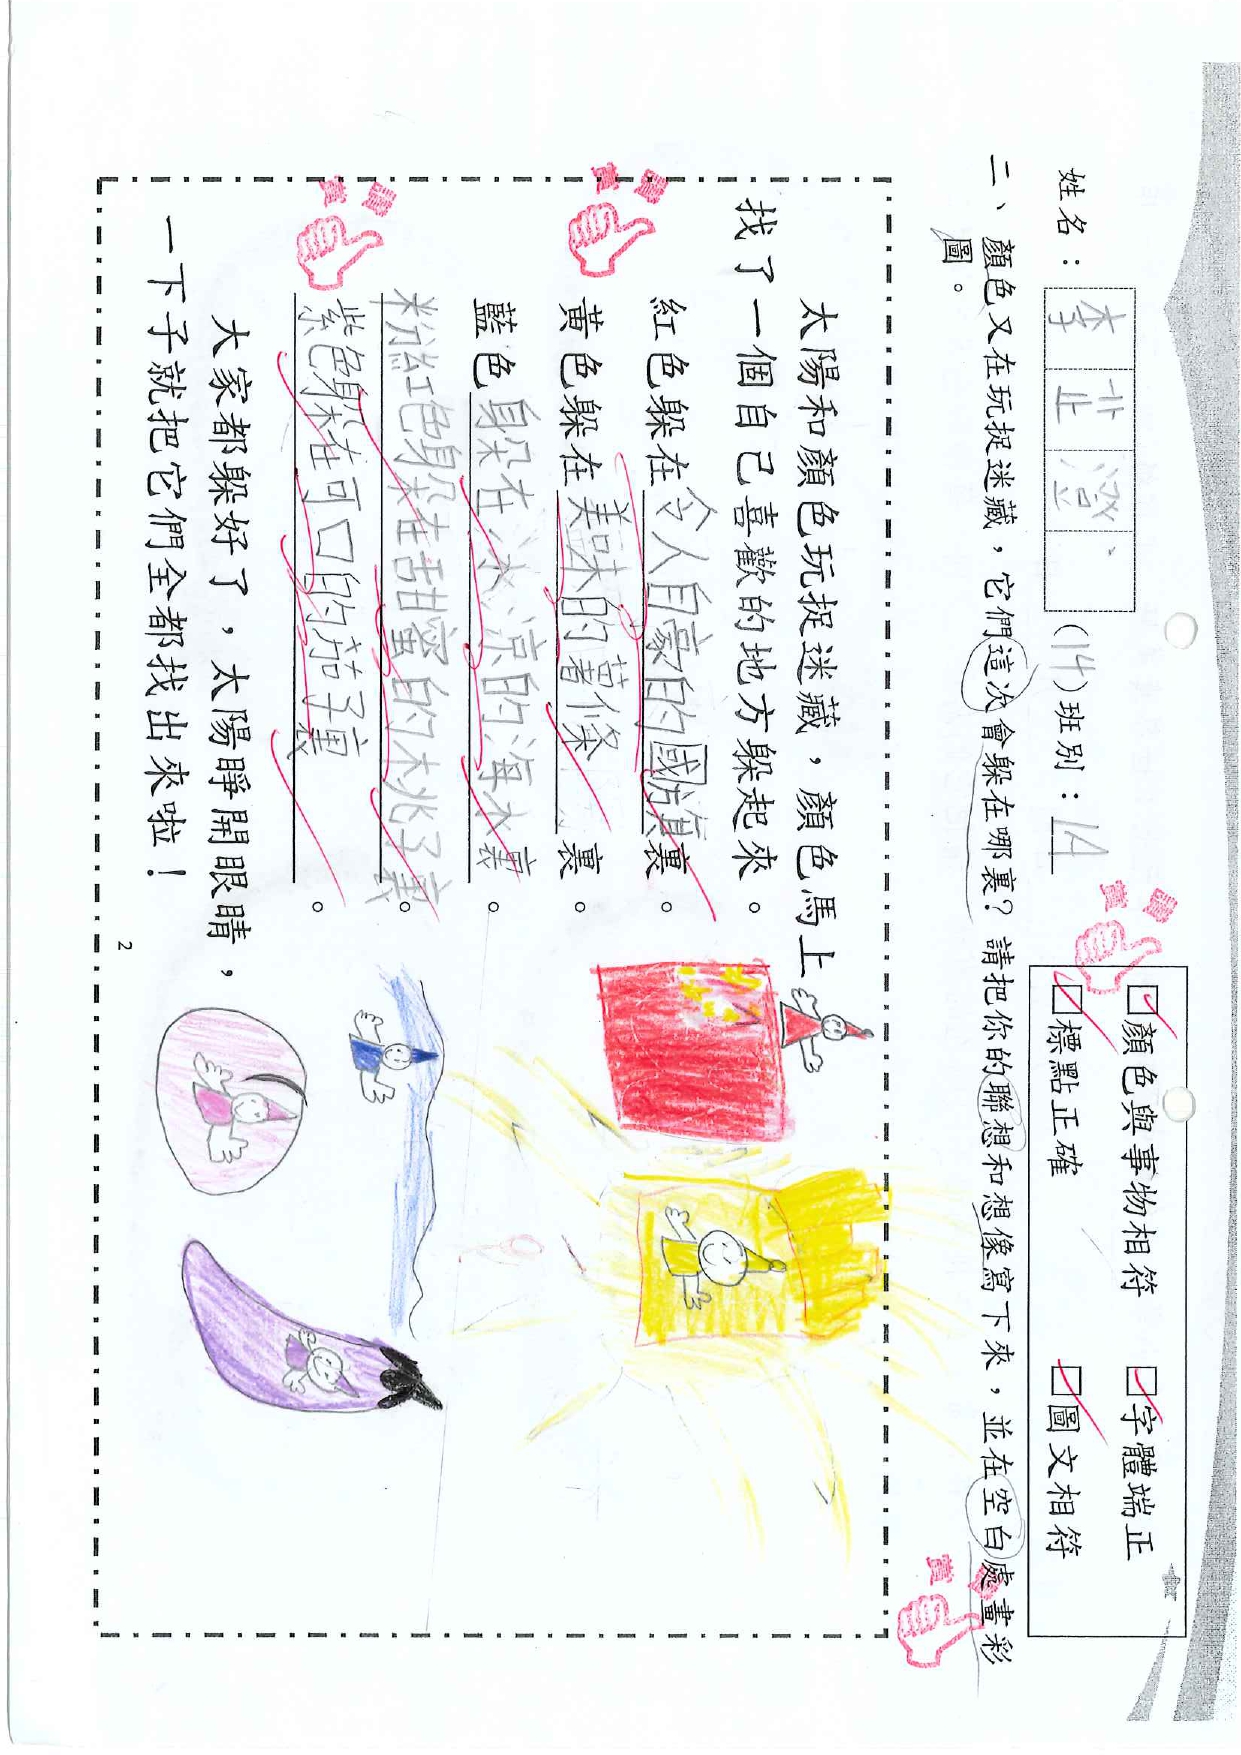 姓名：李芷澄 （14）班別：1A
顏色與事物相符 字體端正
標點正確 圖文相符
二、顏色又在玩捉迷藏，它們這次會躲在哪裏？請把你的聯想和想像寫下來，並在空白處畫彩
圖。
太陽和顏色玩捉迷藏，顏色馬上
找了一個自己喜歡的地方躲起來。
紅色躲在令人自豪的國旗裏。
黃色躲在美味的薯條裏。
藍色躲在冰涼的海水裏。
粉紅色躲在甜蜜的木兆子裏。
紫色躲在可口的茄子裏。
大家都躲好了，太陽睜開眼睛，
一下子就把它們全都找出來啦！
2